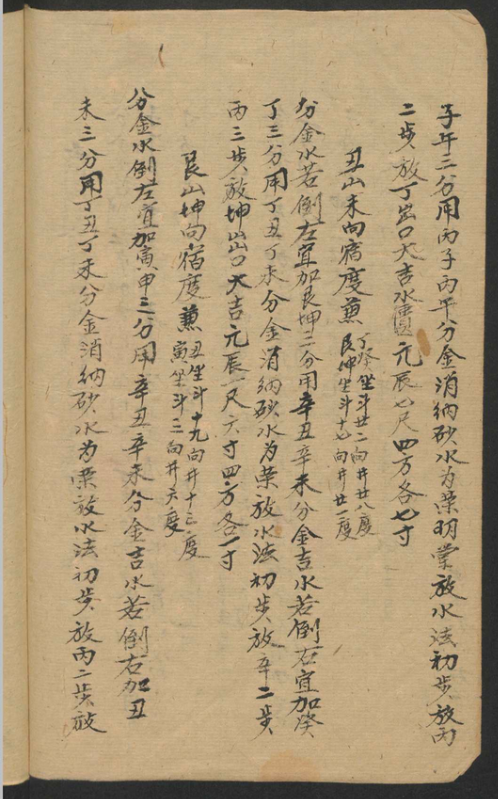 子午三分用丙子丙午分金消納砂水为荣明堂放水法初步放丙
二步放丁出口大吉水圓元辰七尺四方各七寸
丑山未向宿度兼
丁癸坐斗廿二向井廿八度
艮坤坐斗十七向井廿一度
分金水若倒左宜加艮坤二分用辛丑辛未分金吉水若倒右宜加癸
丁三分用丁丑丁未分金消納砂水为荣放水法初步放辛二步
丙三步放坤出口大吉元辰一尺六寸四方各一寸
艮山坤向宿度兼
丑坐斗十九向井十三度
寅坐斗三向井六度
分金水倒左宜加寅申三分用辛丑辛未分金吉水若倒右加丑
未三分用丁丑丁未分金消納砂水为荣放水法初步放丙二步放